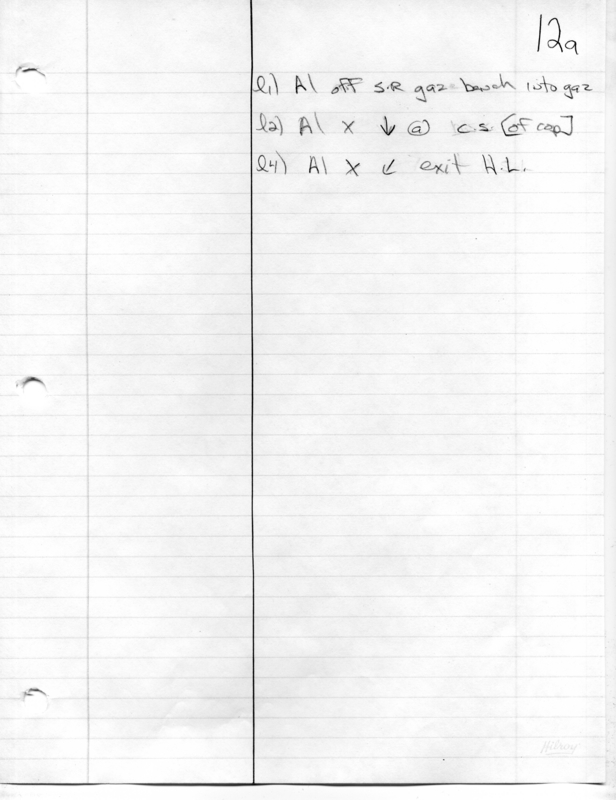 12a
l1) Al off S.R gaz bench into gaz
l2) Al x ↓ @ c.s. [of cap]
l4) Al X ↙ exit H.L.
Hilroy